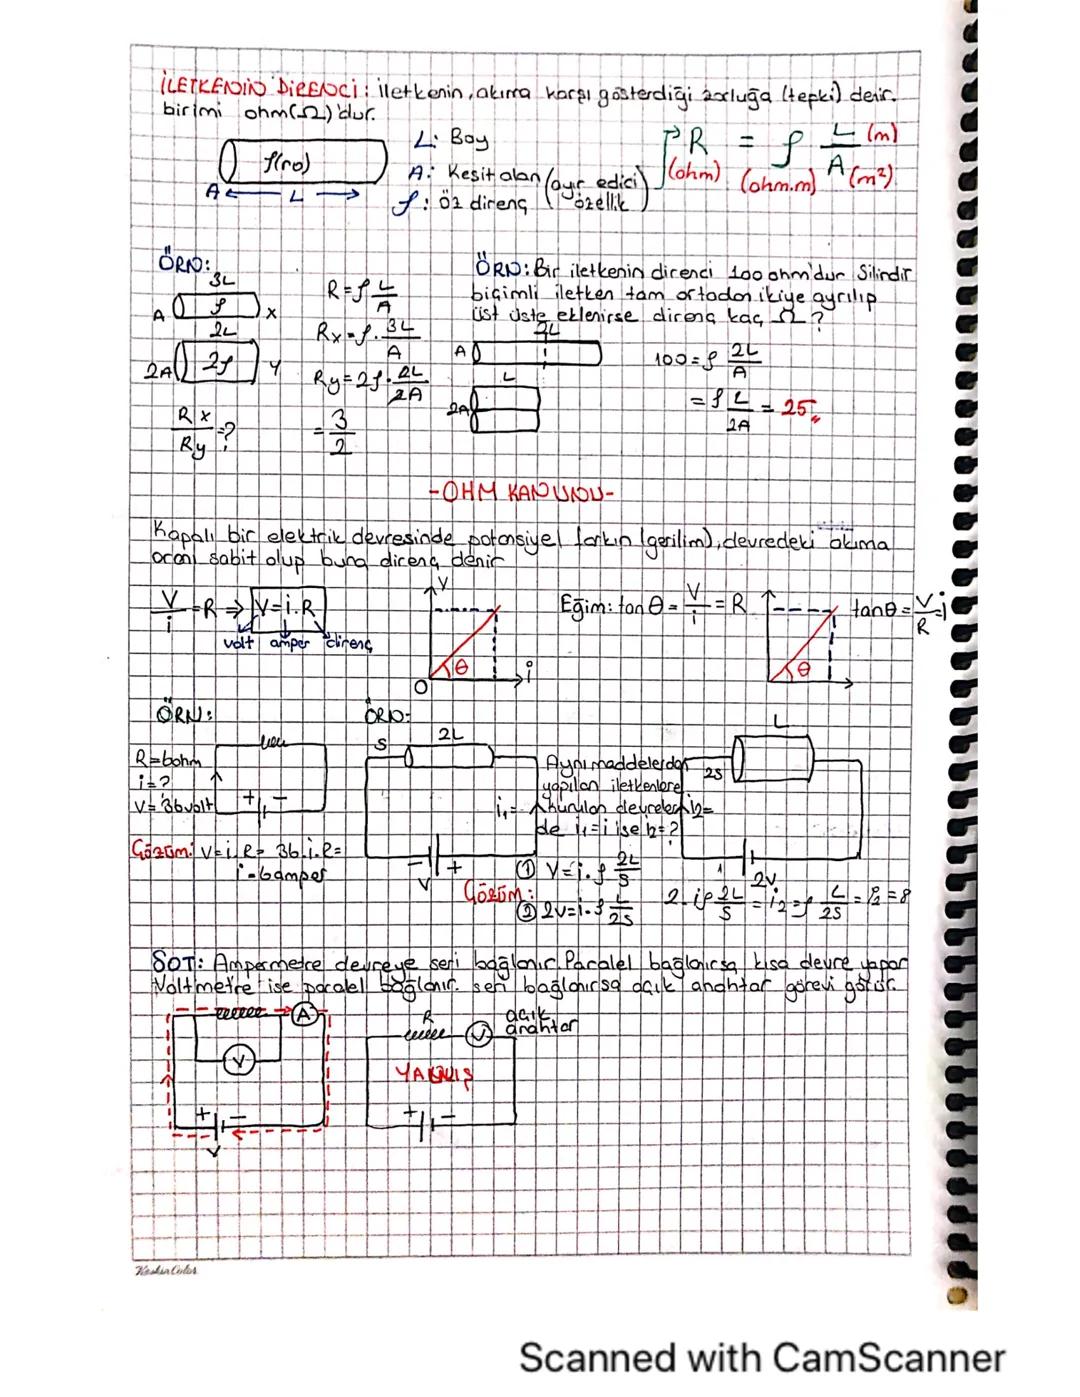 İLETKENİN DİRENCİ: iletkenin, akıma karşı gösterdiği zorluğa (tepki) denir.
birimi ohm(Ω)'dur.
ρ(ro)
A L
L: Boy
A: Kesit alan
ρ: öz direnç (ayır edici özellik)
R = ρ L/A
(ohm) (ohm.m) (m) (m²)
ÖRN:
3L
A ρ X
2L
2A 2ρ Y
Rx/Ry = ?
R = ρ L/A
Rx = ρ. 3L/A
Ry = 2ρ. 2L/2A
= 3/2
ÖRN: Bir iletkenin direnci 100 ohm'dur Silindir
biçimli iletken tam ortadan ikiye ayrılıp
üst üste eklenirse direnç kaç Ω?
2L
A
L
2A
100 = ρ 2L/A
= ρ L/2A = 25
-OHM KANUNU-
Kapalı bir elektrik devresinde potansiyel farkın (gerilim), devredeki akıma
oranı sabit olup buna direnç denir
V/i = R ⇒ V = i.R
volt amper direnç
V
θ
O i
Eğim: tanθ = V/i = R
θ
tanθ = V/R = i
ÖRN:
R = 6ohm
i = ?
V = 36volt
+ -
Çözüm: V = i.R = 36.i.R =
i = 6amper
ÖRN:
S 2L
i₁ =
- +
V
Aynı maddelerden
yapılan iletkenlere
kurulan devrelerde
i₁ = i ise i₂ = ?
L
2S
i₂ =
2V
Çözüm:
① V = i.ρ 2L/S
② 2V = i.ρ L/2S
2.iρ 2L/S = i₂ = ρ L/2S = i₂ = 8
SOT: Ampermetre devreye seri bağlanır. Paralel bağlanırsa kısa devre yapar
Voltmetre ise paralel bağlanır. seri bağlanırsa açık anahtar görevi görür.
A
V
+ -
V
R
V
açık
anahtar
YANLIŞ
+ -
KeskinColor
Scanned with CamScanner